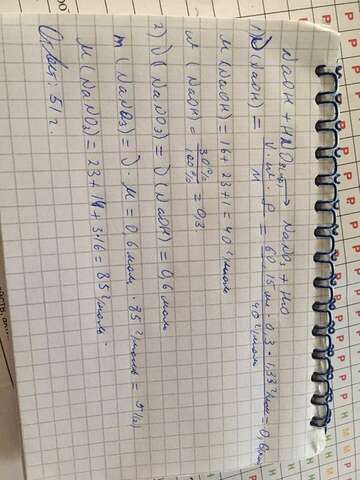 NaOH + HNO3 изб → NaNO3 + H2O
1) ν(NaOH) = V·w·ρ / M = 60,15 мл · 0,3 · 1,33 г/мл / 40 г/моль = 0,6 моль
M(NaOH) = 16 + 23 + 1 = 40 г/моль
w(NaOH) = 30% / 100% = 0,3
2) ν(NaNO3) = ν(NaOH) = 0,6 моль
m(NaNO3) = ν · M = 0,6 моль · 85 г/моль = 51 г
M(NaNO3) = 23 + 14 + 3·16 = 85 г/моль.
Ответ: 51 г.